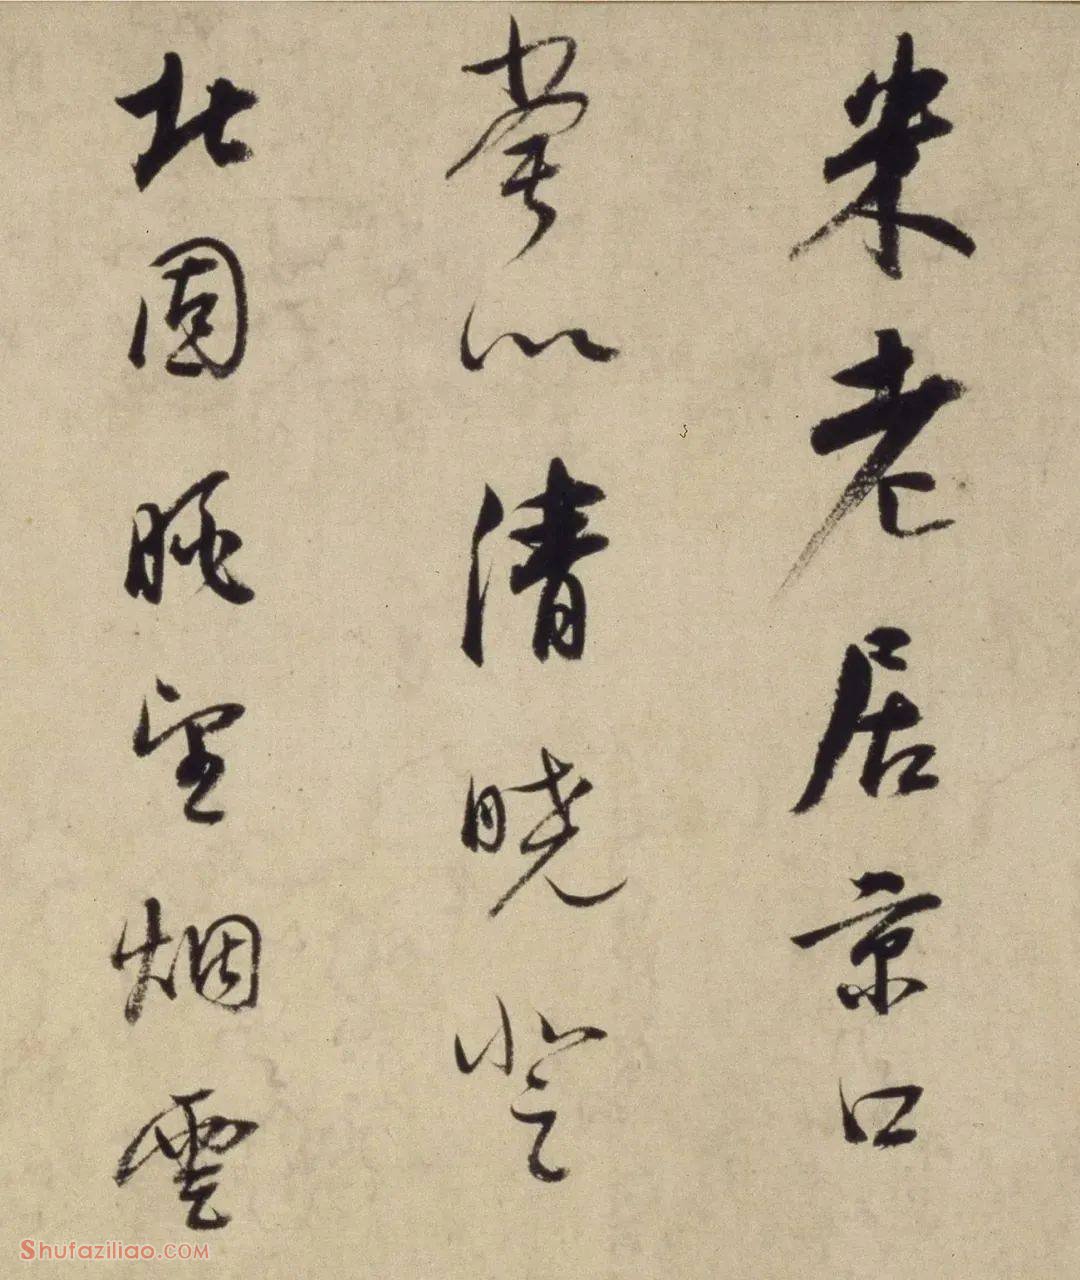 米老居京口
尝以清晓登
北固眺望烟雲
Shufaziliao.COM